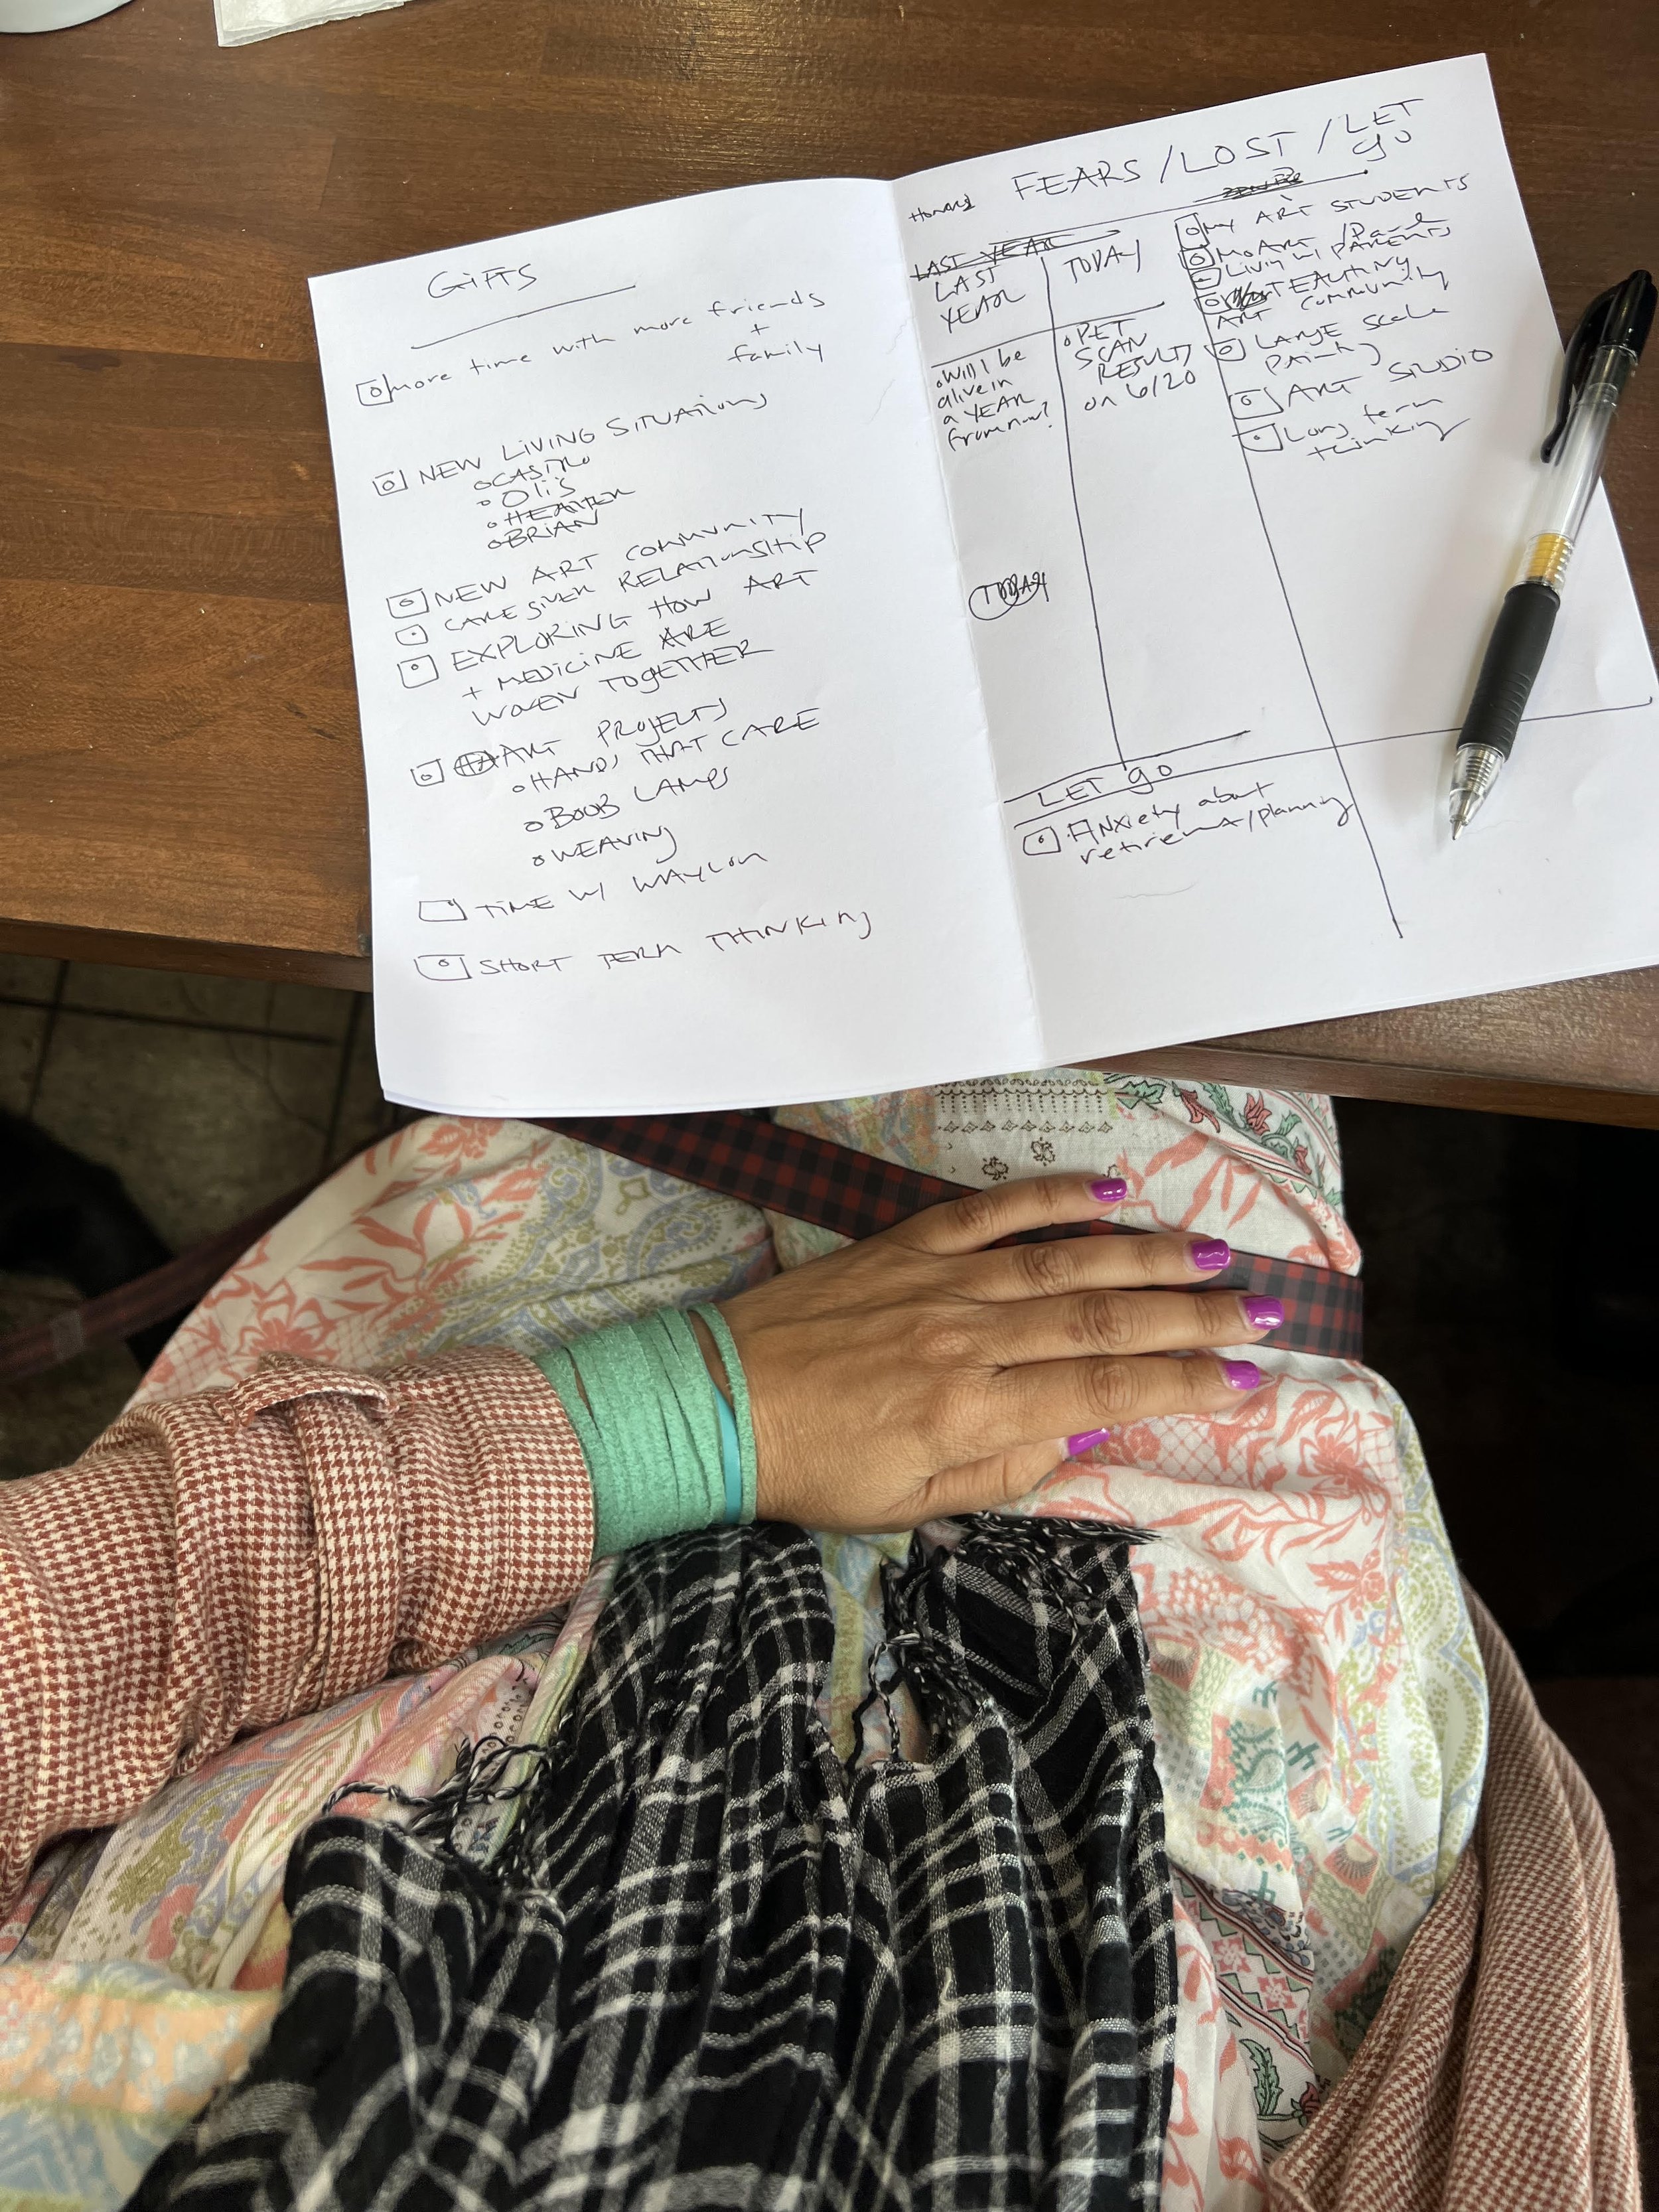 GIFTS
more time with more friends
+
family
NEW LIVING SITUATIONS
CASTRO
OLI'S
HEATHER
BRIAN
NEW ART COMMUNITY
CARE GIVER RELATIONSHIP
EXPLORING HOW ART
+ MEDICINE ARE
WOVEN TOGETHER
ART PROJECTS
HANDS THAT CARE
BOOB LAMPS
WEAVING
TIME W/ WAYLON
SHORT TERM THINKING
FEARS / LOST / LET
go
LAST YEAR
LAST
YEAR
Will I be
alive in
a YEAR
from now?
TODAY
PET
SCAN
RESULTS
on 6/20
TODAY
MY ART STUDENTS
MOART /
Living w/ PARENTS
TEACHING
ART COMMUNITY
LARGE scale
painting
ART STUDIO
Long term
thinking
LET go
Anxiety about
retirement/planning